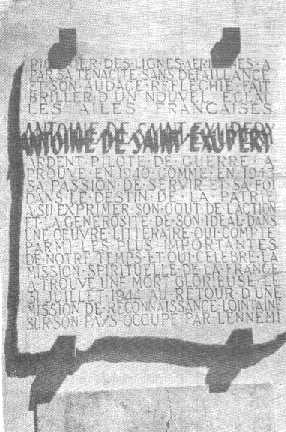 PIONNIER·DES·LIGNES·AERIENNES·A
PAR·SA·TENACITE·SANS·DEFAILLANCE
ET·SON·AUDACE·REFLECHIE·FAIT
BRILLER·D'UN·NOUVEL·ECLAT
LES AILES FRANÇAISES
ANTOINE DE SAINT EXUPERY
ARDENT PILOTE DE GUERRE A
PROUVE·EN·1940·COMME·EN·1943
SA PASSION DE SERVIR ET SA FOI
DANS LE DESTIN DE LA PATRIE
A SU EXPRIMER·SON·GOUT DE L'ACTION
ET LA GENEROSITE DE SON IDEAL DANS
UNE ŒUVRE LITTERAIRE QUI COMPTE
PARMI LES PLUS IMPORTANTES
DE NOTRE TEMPS ET QUI CELEBRE LA
MISSION SPIRITUELLE DE LA FRANCE
A TROUVE UNE MORT GLORIEUSE LE
31 JUILLET 1944 AU RETOUR D'UNE
MISSION DE RECONNAISSANCE LOINTAINE
SUR SON PAYS OCCUPE PAR L'ENNEMI